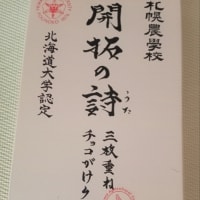 札幌農學校
開拓の詩
うた
三枚重ね
チョコがけク
北海道大学認定